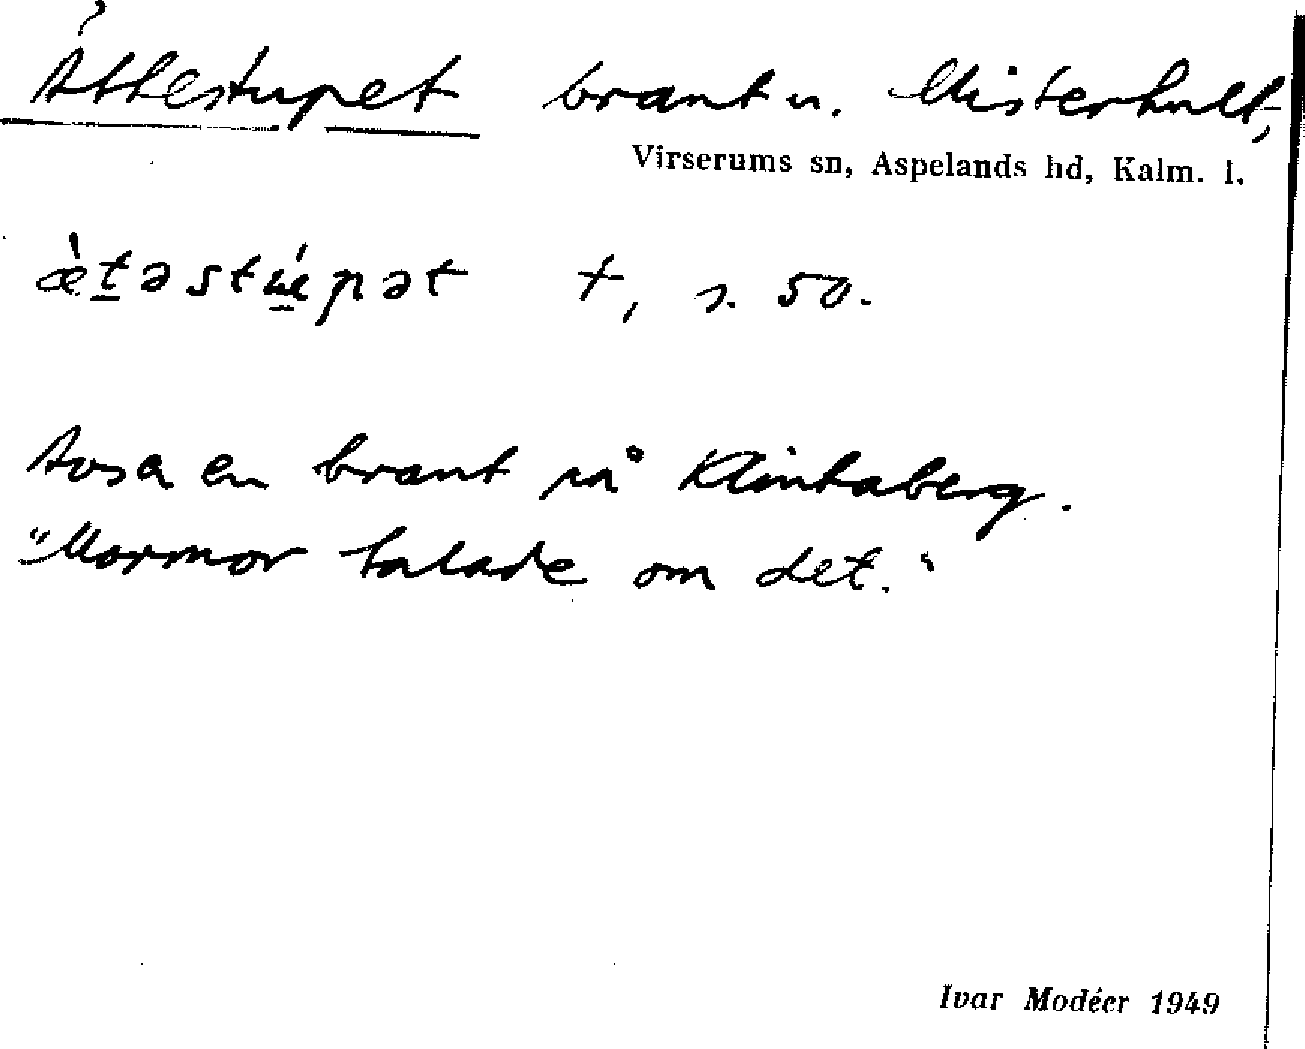 Ättestupet brant u. Misterhult,
Virserums sn, Aspelands hd, Kalm. l.
æ̀t̠əstu̠épət †, s. 50.
Avser en brant på Klintaberg.
"Mormor talade om det."
Ivar Modéer 1949